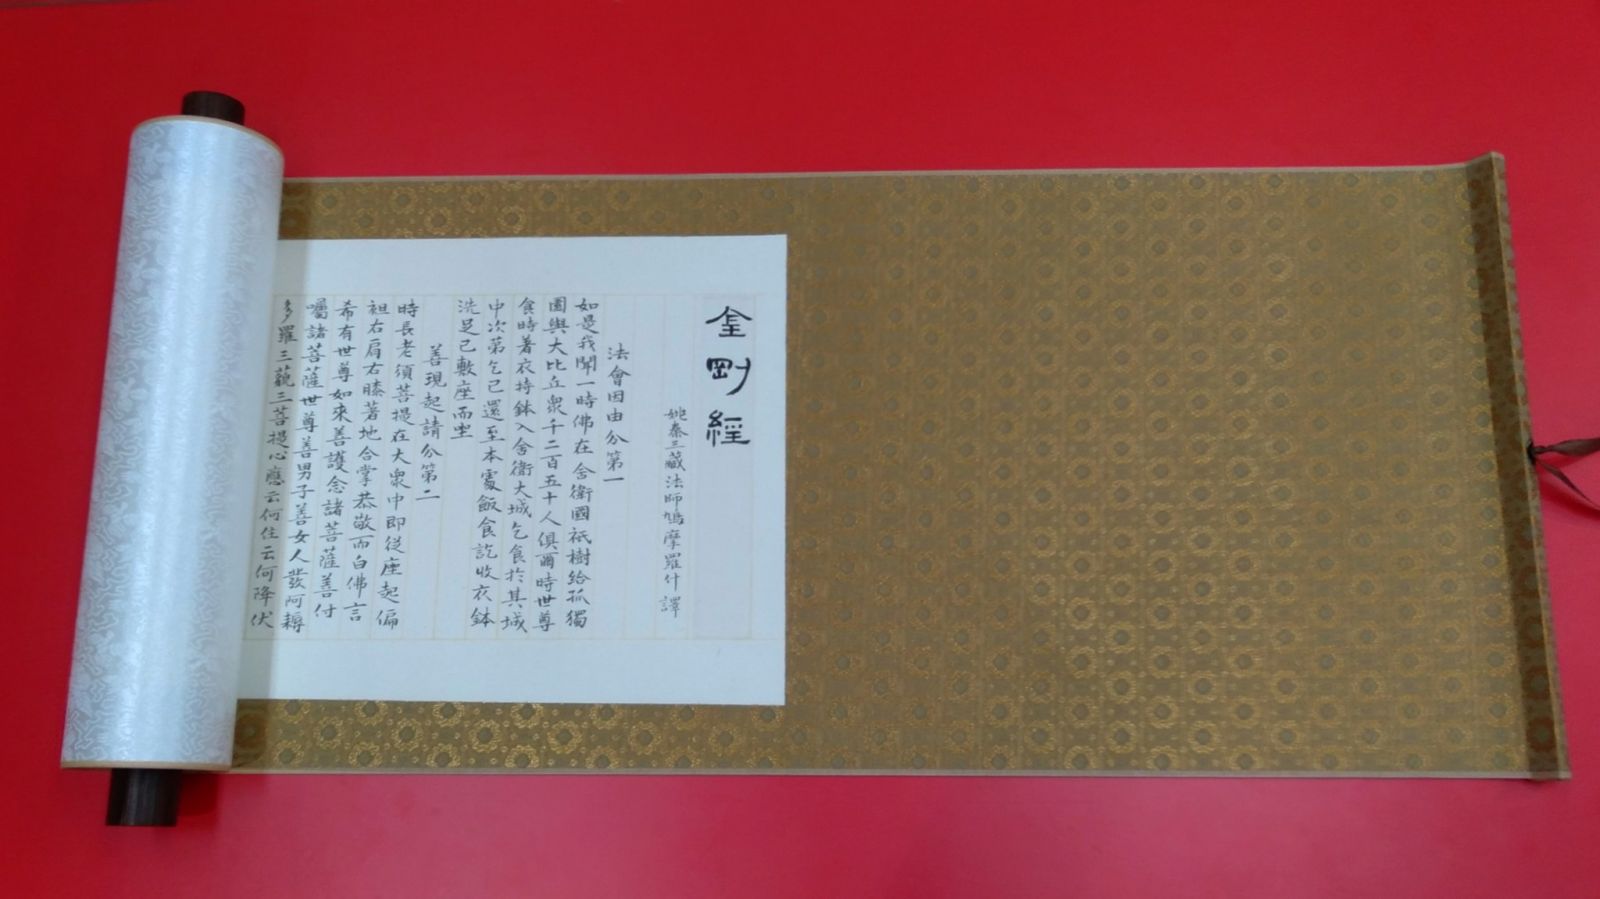 金剛經
姚秦三藏法師鳩摩羅什譯
法會因由分第一
如是我聞一時佛在舍衛國祇樹給孤獨
園與大比丘衆千二百五十人俱爾時世尊
食時著衣持鉢入舍衛大城乞食於其城
中次第乞已還至本處飯食訖收衣鉢
洗足已敷座而坐
善現起請分第二
時長老須菩提在大衆中即從座起偏
袒右肩右膝著地合掌恭敬而白佛言
希有世尊如來善護念諸菩薩善付
囑諸菩薩世尊善男子善女人發阿耨
多羅三藐三菩提心應云何住云何降伏